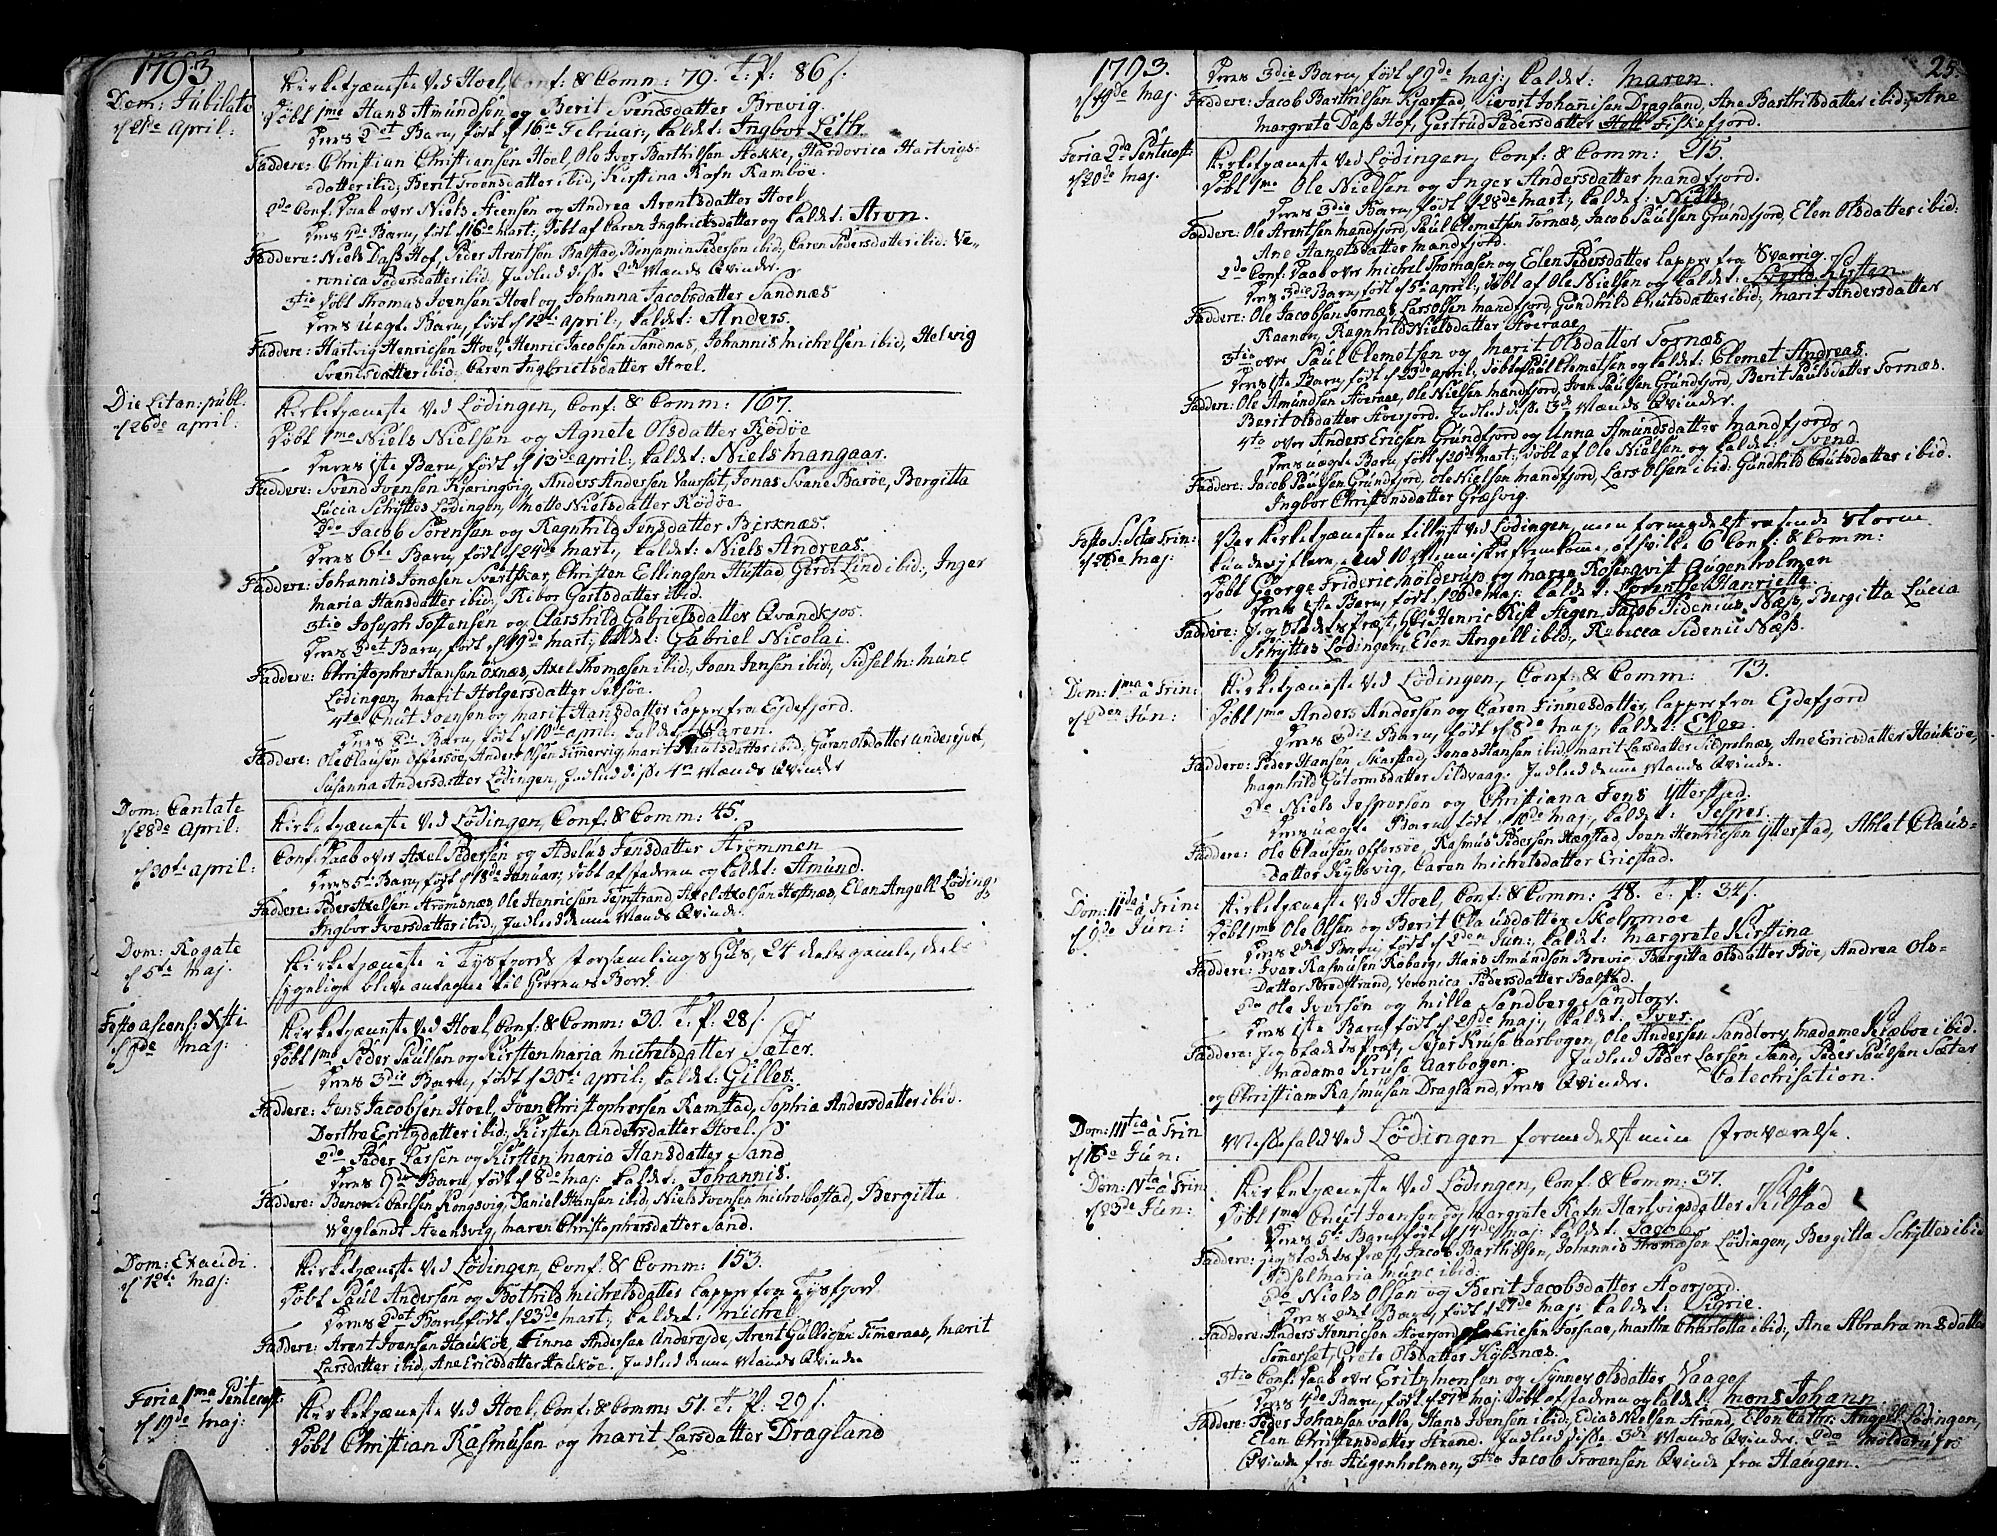 1793.
Dom: Jubilate
d 21de April:
Kirketjæneste ved Hoel, Conf: & Comm: 79. T. p: 86 s.
Døbt 1mo Hans Amundsøn og Berit Svendsdatter Brevig.
Deres 2det Barn, født d 16de Februar, kaldet: Ingbor Leth.
Faddere: Christian Christiansøn Hoel, Ole Iver Barthilsen Hokke, Hardovica Hartvigs-
datter ibid; Berit Troensdatter ibid, Kirstina Rafn Ramboe.
2do Conf: Daab over Niels Steensøn og Andrea Arentsdatter Hoel
Deres 4de Barn, født d 16de Mart:, døbt af Caren Ingbrictsdatter og kaldet: Aron.
Faddere: Niels Dass Hof, Peder Arentsøn Balstad, Benjamin Pedersøn ibid, Caren Pedersdatter ibid: Ve-
ronica Pedersdatter ibid. Indled disse 2de Mænds Qvinder.
3tio døbt Thomas Ivensen Hoel og Johanna Jacobsdatter Sandnæs
Deres uægte Barn, født d 12te April:, kaldet: Anders.
Faddere: Hartvig Henricsen Hoel, Henric Jacobsen Sandnæs, Johannis Michelsen ibid, Helvig
Svendsdatter ibid, Caren Ingbrictsdatter Hoel.
Die Litan: publ.
d 26de April:
Kirketjæneste ved Lødingen, Conf: & Comm: 167.
Døbt 1mo Niels Nielsen og Agnete Olsdatter Rødøe
Deres 1ste Barn, født d 13de April:, kaldet: Niels Mangaar.
Faddere: Svend Ivensen Kjæringvig, Anders Andersen Vaustot, Jonas Svane Barøe, Bergitta
Lucia Schyttes Lødingen, Mette Nielsdatter Rødøe.
2do Jacob Sørensen og Ragnhild Jensdatter Birknæs.
Deres 6te Barn, født d 24de Mart:, kaldet: Niels Andreas.
Faddere: Johannis Jonæsen Svartskar, Christen Ellingsen Hustad, Gerdt Lind ibid:, Inger
Maria Hansdatter ibid; Ribor Gertsdatter ibid.
3tio Joseph Tostensen og Aarshild Gabrielsdatter Qvandkjos.
Deres 3det Barn, født d 19de Mart:, kaldet: Gabriel Nicolai.
Faddere: Christopher Hansen Oxnæs, Axel Thomæsen ibid:, Ivan Jensen ibid:, Sidsel M: Munc
Lødingen, Marit Holgersdatter Selsøe.
4to Cnut Ivensen og Marit Hansdatter Lapper fra Ejdefjord.
Deres 8de Barn, født d 10de April:, kaldet: Maren.
Faddere: Ole Clausen Offersøe, Anders Olsen Timmervig, Marit Nielsdatter ibid:, Caren Olsdatter Anderejdet,
Susanna Andersdatter Lødingen, Indled disse 4re Mænds Qvinder
Dom: Cantate
d 28de April:
Kirketjæneste ved Lødingen, Conf: & Comm: 45.
d 30te April:
Conf: Daab over Axel Pedersen og Adelus Jensdatter Strømmen
Deres 5te Barn, født d 18de Januar:, døbt af Faderen og kaldet: Amund.
Faddere: Peder Axelsen Strømsnæs, Ole Henricsen Tennstrand, Axel Axelsen Hofnæs, Elen Angell Lødingen,
Ingbor Iversdatter ibid:, Indled denne Mands Qvinde.
Dom: Rogate
d 5te Maj.
Kirketjæneste i Tysfjords Forsamlings Huus, 24 deels gamle, deels
sygelige blive antagne til Herrens Bord.
Festo Ascens: Xsti
d 9de Maj:
Kirketjæneste ved Hoel, Conf: & Comm: 30. T. p: 28 s.
Døbt 1mo Peder Paulsen og Kirsten Maria Michelsdatter Sæter.
Deres 3die Barn, født d 30te April:, kaldet: Gilles.
Faddere: Jens Jacobsen Hoel, Iven Christophersen Ramstad, Sophia Andersdatter ibid.
Dorthe Eritzdatter ibid; Kirsten Andersdatter Hoel.
2do Peder Larsen og Kirsten Maria Hansdatter Sand
Deres 9de Barn, født d 8de Maj: kaldet: Johannis.
Faddere: Benoni Carlsen Kongsvig, Daniel Hansen ibid; Niels Ivensen Michelbostad, Bergitta
Wejglandt Steensvig, Maren Christophersdatter Sand.
Dom: Exaudi.
d 12te Maj:
Kirketjæneste ved Lødingen, Conf: & Comm: 153.
Døbt Paul Andersen og Bothild Michelsdatter Lapper fra Tysfjord
Deres 2det Barn, født d 23de Mart:, kaldet: Michel
Faddere: Arent Ivensen Haukøe, Finna Andersen Anderejde, Arent Gullicsen Timeraas, Marit
Larsdatter ibid, Ane Ericsdatter Haukøe. Indled denne Mands Qvinde
Feria 1ma Pentecost:
d 19de Maj:
Kirketjæneste ved Hoel, Conf: & Comm: 51. T. p: 29 s.
Døbt Christian Rasmusen og Marit Larsdatter Dragland
1793.
25.
d 19de Maj.
Deres 3die Barn, født d 9de Maj:, kaldet: Maren.
Faddere: Jacob Barthilsen Kjæstad, Sivert Johanisen Dragland, Ane Barthelsdatter ibid:, Ane
Margrete Dass Hof, Gertrud Pedersdatter Fiskefjord.
Feria 2da Pentecost:
d 20de Maj.
Kirketjæneste ved Lødingen, Conf: & Comm: 215.
Døbt 1mo Ole Nielsen og Inger Andersdatter Mandfjord.
Deres 3die Barn, født d 28de Mart:, kaldet: Niels.
Faddere: Ole Arentsen Mandfjord, Paul Clemetsen Tornæs, Jacob Paulsen Grundfjord, Elen Olsdatter ibid:
Ane Hanetsdatter Mandfjord.
2do Conf: Daab over Michel Thomæsen og Elen Pedersdatter Lapper fra Sværrig.
Deres 3die Barn, født d 5te April:, døbt af Ole Nielsen og kaldet: Svend Kirsten.
Faddere: Ole Jacobsen Tornæs, Lars Olsen Mandfjord, Gundhild Cnutsdatter ibid:, Marit Andersdatter
Raanøe, Ragnhild Nielsdatter Hoeraae.
3tio over Paul Clemetsen og Marit Olsdatter Tornæs.
Deres 1ste Barn, født d 23de April, døbt af Paul Clemetsen og kaldet: Clemet Andreas.
Faddere: Ole Amundsen Hoeraae, Ole Nielsen Mandfjord, Iven Paulsen Grundfjord, Berit Paulsdatter Tornæs.
Berit Olsdatter Hoerjord. Indled disse 3de Mænds Qvinder.
4to over Anders Ericsen Grundfjord og Unna Amundsdatter Mandfjord
Deres uægte Barn, født d 20de Mart: døbt af Ole Nielsen, og kaldet: Svend.
Faddere: Jacob Paulsen Grundfjord, Ole Nielsen Mandfjord, Lars Olsen ibid: Gundhild Cnutsdatter ibid.
Ingbor Christensdatter Græsvig.
Festo S. Sctæ Trin:
d 26de Maj:
Var Kirketjænesten tillyst ved Lødingen, men formedelst rasende Storm
kunde ej flere end 10 Mennesker fremkomme, af hvilke 6 Conf: & Comm:
Døbt George Frideric Molderup og Maren Rosenqvist Augenholmen
Deres 1ste Barn, født d 20de Maj: kaldet: Lorentse Henriette.
Faddere: Jeg Stædets Præst, Hr: Henric Rist Hegen, Jacob Sidenius, Næss, Bergitta Lucia
Schyttes Lødingen, Elen Angell ibid:, Rebecca Sidenii Næss.
Dom: 1ma à Trin:
d 2den Jun:
Kirketjæneste ved Lødingen, Conf: & Comm: 73.
Døbt 1mo Anders Andersen og Caren Finnesdatter, Lapper fra Ejdefjord
Deres 3die Barn, født d 8de Maj: kaldet: Elen.
Faddere: Peder Hansen Skarstad, Jonas Hansen ibid:, Marit Larsdatter Sildpolnæs, Ane Ericsdatter Haukøe,
Magnhild Gutormsdatter Sildvaag. Indled denne Mands Qvinde.
2do Niels Jespersen og Christiana Jens Ytterstad.
Deres uægte Barn, født d 10de Maj: kaldet: Jesper.
Faddere: Ole Clausen Offersøe, Rasmus Pedersen Hægstad, Iven Henricsen Ytterstad, Ahlet Claus-
datter Rejbvig, Caren Michelsdatter Ericstad.
Dom: IIda à Trin:
d 9de Jun:
Kirketjæneste ved Hoel, Conf: & Comm: 48. T. p: 34 s.
Døbt 1mo Ole Olsen og Berit Clausdatter Skolpmoe
Deres 2det Barn, født d 2den Jun: kaldet: Margrete Kirstina
Faddere: Ivar Rasmusen Roberg, Hans Amundsen Brevig, Bergitta Olsdatter Bøe, Andrea Ols-
datter Bredstrand, Veronica Pedersdatter Balstad.
2do Ole Iversen og Milla Sandberg Sandtorv.
Deres 1ste Barn født d 29de Maj:, kaldet: Iver.
Faddere: Jeg Stædets Præst, Sejer Kruse Aarbogen, Ole Andersen Sandtorv, Madame Skræboe ibid.
Madame Kruse Aarbogen. Indled Peder Larsen Sand, Peder Paulsen Sæter
og Christian Rasmusen Dragland, deres Qvinder. Catechisation.
Dom: IIItia à Trin
d 16de Jun:
Messefald ved Lødingen formedelst min Fraværelse.
Dom: IVta à Trin:
d 23de Jun:
Kirketjæneste ved Lødingen, Conf: & Comm: 37.
Døbt 1mo Cnut Ivensen og Margrete Rafn Hartvigsdatter
Deres 5te Barn, født d 14de Maj: kaldet: Jacob
Faddere: Jeg Stædets Præst, Jacob Barthilsen, Johannis Thomæsen Lødingen, Bergitta Schyttes ibid:
Sidsel Maria Munc ibid:
2do Niels Olsen og Berit Jacobsdatter Hoerjord.
Deres 2det Barn, født d 27de Maj: kaldet: Sigrie.
Faddere: Anders Henricsen Hoerjord, Ericsen Forsaae, Martha Charlotta ibid:, Ane Abrahamsdatter
Somerset, Grete Olsdatter Kybsnæs.
3tio Conf: Daab over Eritz Monsen og Synnev Olsdatter Vaage
Deres 4de Barn, født d 27de Maj: døbt af Faderen og kaldet: Mons Johann
Faddere: Peder Johansen Valle, Hans Ivensen ibid; Edias Nielsen Strand, Elen Cathr: Angell Lødingen,
Elen Christensdatter Strand. Indled disse 3de Mænds Qvinder. 2do Molderups
Qvinde fra Augenholmen, 3tio Jacob Troensen Qvinde fra Haugen.